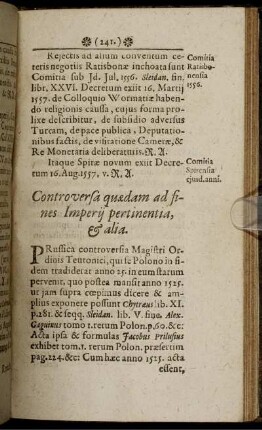 (241.)
Rejectis ad alium conventum ce-
teris negotiis Ratisbonæ inchoata sunt
Comitia sub Jd. Jul. 1556. Sleidan. fin.
libr. XXVI. Decretum exiit 16. Martij
1557. de Colloquio Wormatiæ haben-
do religionis caussa, cujus forma pro-
lixe describitur, de subsidio adversus
Turcam, de pace publica, Deputatio-
nibus factis, de visitatione Cameræ, &
Re Monetaria deliberaturis. R. A.
Itaque Spiræ novum exiit Decre-
tum 16. Aug. 1557. v. R. A.
Comitia
Ratisbo-
nensia
1556.
Comitia
Spirensia
ejusd. anni.
Controversa quædam ad fi-
nes Imperij pertinentia,
& alia.
PRussica controversia Magistri Or-
dinis Teutonici, qui se Polono in fi-
dem tradiderat anno 25. in eum statum
pervenit, quo postea mansit anno 1525.
ut jam supra cœpimus dicere & am-
plius exponere possunt Chytræus lib. XI.
p. 281. & seqq. Sleidan. lib. V. sine. Alex.
Gaguinus tomo 1. rerum Polon. p. 60. &c:
Acta ipsa & formulas Jacobus Prilusius
exhibet tom. 1. rerum Polon. præsertim
pag. 224. &c: Cum hæc anno 1525. acta
essent,